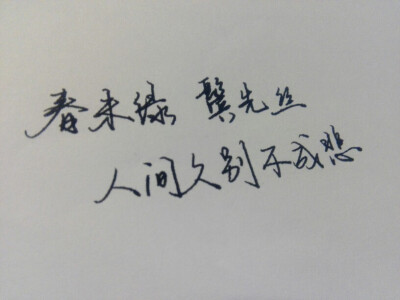 春未绿 鬓先丝
人间久别不成悲